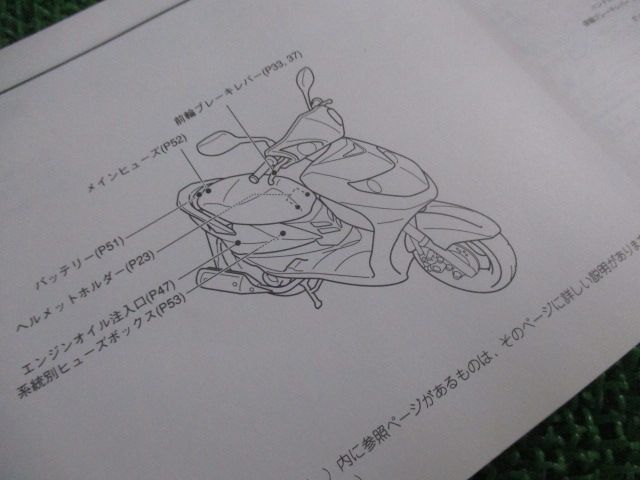 前輪ブレーキレバー(P33, 37)
メインヒューズ(P52)
バッテリー(P51)
ヘルメットホルダー(P23)
エンジンオイル注入口(P47)
系統別ヒューズボックス(P53)
）内に参照ページがあるものは、そのページに詳しい説明があります